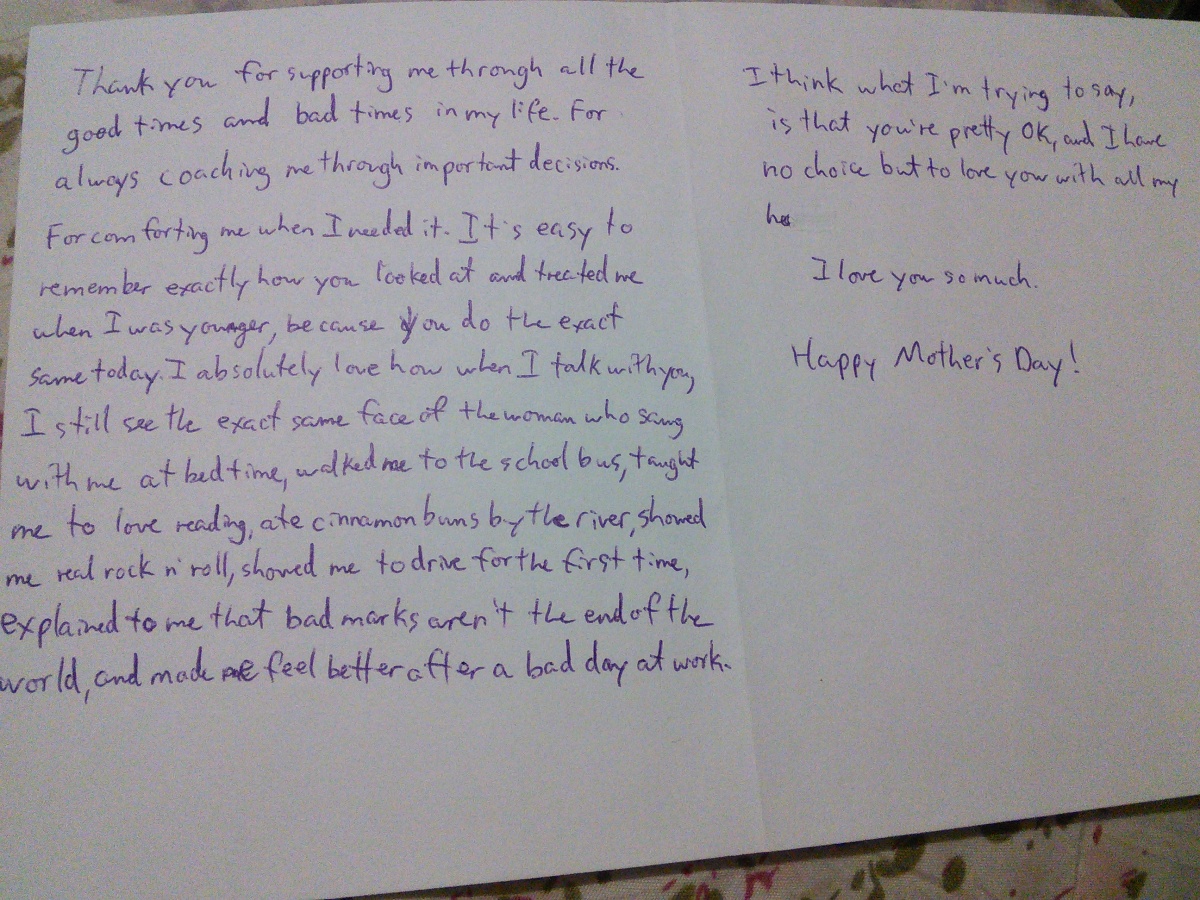 Thank you for supporting me through all the
good times and bad times in my life. For
always coaching me through important decisions.
For comforting me when I needed it. It's easy to
remember exactly how you looked at and treated me
when I was younger, because you do the exact
same today. I absolutely love how when I talk with you,
I still see the exact same face of the woman who sang
with me at bedtime, walked me to the school bus, taught
me to love reading, ate cinnamon buns by the river, showed
me real rock n' roll, showed me to drive for the first time,
explained to me that bad marks aren't the end of the
world, and made me feel better after a bad day at work.
I think what I'm trying to say,
is that you're pretty OK, and I have
no choice but to love you with all my
I love you so much.
Happy Mother's Day!